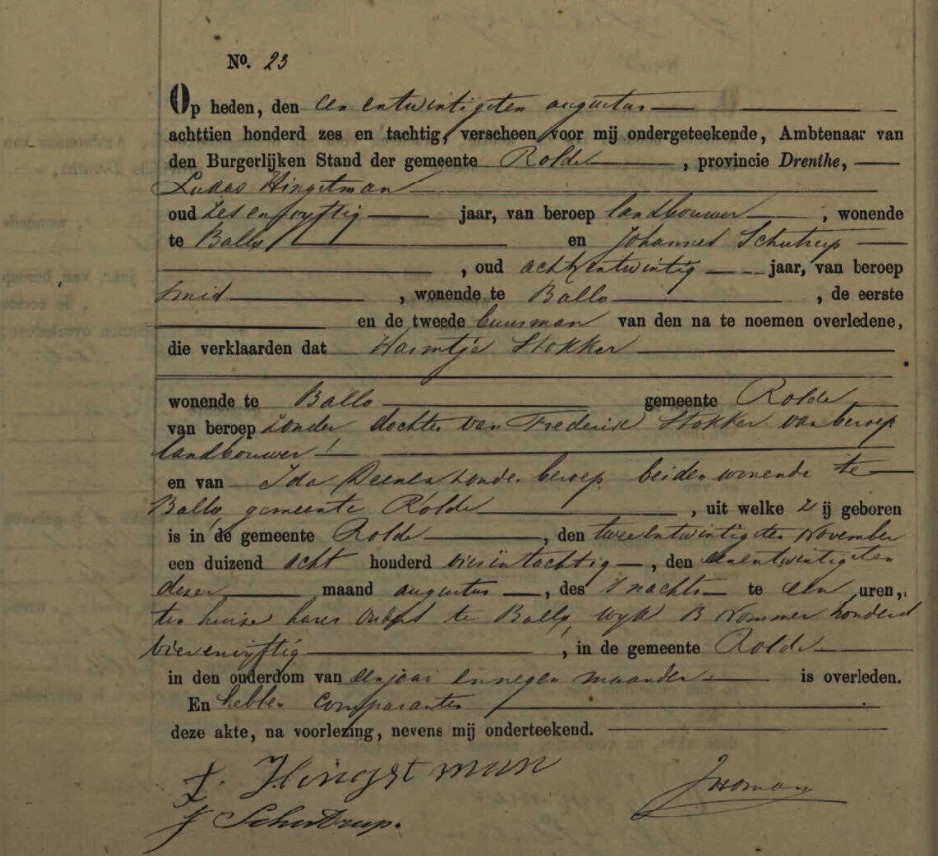 No. 23
Op heden, den een entwintigsten augustus
achttien honderd zes en tachtig, verscheen voor mij ondergeteekende, Ambtenaar van
den Burgerlijken Stand der gemeente Rolde, provincie Drenthe,
Lukas Hingstman
oud zes en vyftig jaar, van beroep landbouwer, wonende
te Ballo en Johannes Schutrup
, oud achtentwintig jaar, van beroep
smid, wonende te Ballo, de eerste
en de tweede buurman van den na te noemen overledene,
die verklaarden dat Harmtje Stokker
wonende te Ballo gemeente Rolde
van beroep zonder dochter van Frederik Stokker van beroep
landbouwer
en van Ida Deenen zonder beroep beiden wonende te
Ballo, gemeente Rolde, uit welke zij geboren
is in de gemeente Rolde, den tweeentwintigsten November
een duizend acht honderd vierentachtig, den eenentwintigsten
dezer maand augustus, des 's nachts te een uren,
ten huize harer ouders te Ballo, wyk B Nommer honderd
vierenvyftig, in de gemeente Rolde
in den ouderdom van een jaar en negen maanden is overleden.
En hebben comparanten
deze akte, na voorlezing, nevens mij onderteekend.
L. Hingstman
J Schutrup. JHoman